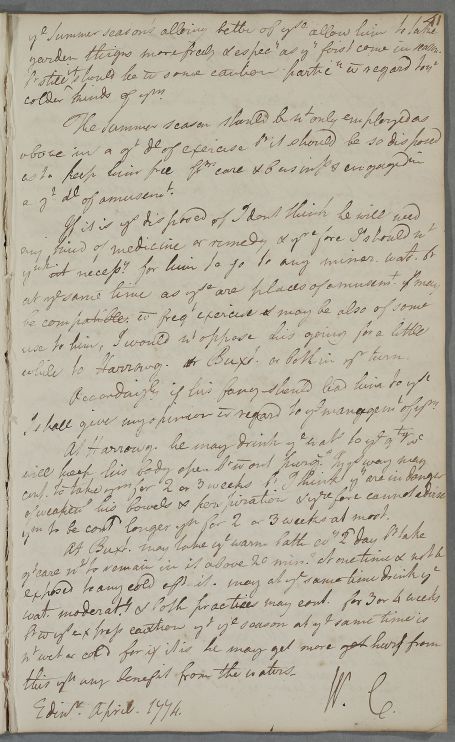 41
ye Summer seasons allowing better of yse allow him to take
garden things more freely & especly as yy first come in season
Bt still should be wt some caution particly wt regard to ye
colder kinds of ym.
The Summer season should be nt only employed as
above in a gt dl of exercise Bt it should be so disposed
as to keep him free from care & business & engaged in
a gt dl of amusemt.
If it is ys disposed of I dont think he will need
any kind of medicine or remedy & yrfore I should nt
ynk it necessy for him to go to any miner. wat. Bt
at ye same time as yse are places of amusemt & may
be compatible wt freqt exercise & may be also of some
use to him, I would nt oppose his going for a little
while to Harrowg. or Buxt. or both in yr turn.
Accordingly if his fancy should lead him to yse
I shall give my opinion wt regard to ye managemt of ym
At Harrowg. he may drink ye wat. to ye qty yt
will keep his body open bt wtout purgg. In ys way may
cont. to take ym for 2 or 3 weeks Bt I think yy are in danger
of weakeng his bowels & perspiration & yrfore cannot advise
ym to be contd longer yn for 2 or 3 weeks at most.
At Buxt. may take ye warm bath evy 2d day Bt take
yt care nt to remain in it above 20 mints at one time & nt be
exposed to any cold aftr it. may at ye same time drink ye
wat. moderatly & both practices may cont. for 3 or 4 weeks
Bt wt ys express caution yt ye season at yt same time is
nt wet or cold for if it is he may get more hurt from
this yn any benefit from the waters.
W. C.
Edinr. April. 1774.